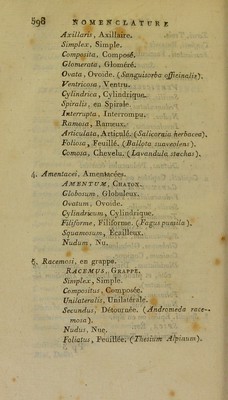 598 NOMENCLATURE
Axillaris, Axillaire.
Simplex, Simple.
Composita, Composé.
Glomerata, Gloméré.
Ovata, Ovoïde. (Sanguisorba officinalis).
Ventricosa, Ventru.
Cylindrica, Cylindrique.
Spiralis, en Spirale.
Interrupta, Interrompu.
Ramosa, Rameux.
Articulata, Articulé. (Salicornia herbacea).
Foliosa, Feuillé. (Ballota suaveolens).
Comosa, Chevelu. (Lavandula stæchas).
4. Amentacei, Amentacées.
AMENTUM, CHATON.
Globosum, Globuleux.
Ovatum, Ovoïde.
Cylindricum, Cylindrique.
Filiforme, Filiforme. (Fagus pumila).
Squamosum, Écailleux.
Nudum, Nu.
5. Racemosi, en grappe.
RACEMUS, GRAPPE.
Simplex, Simple.
Compositus, Composée.
Unilateralis, Unilatérale.
Secundus, Détournée. (Andromeda race-
mosa).
Nudus, Nue.
Foliatus, Feuillée. (Thesium Alpinum).